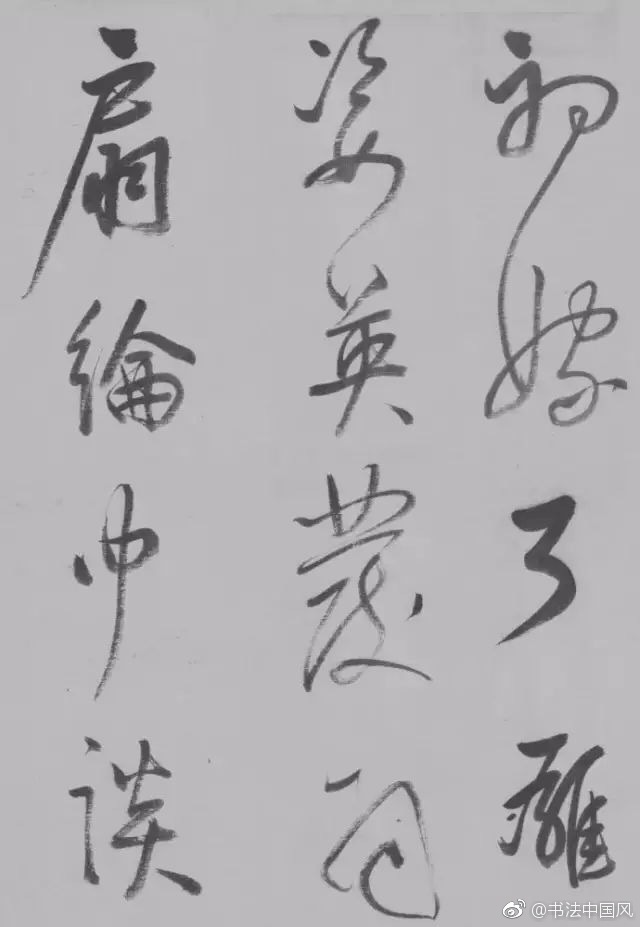 初嫁了雄
姿英發羽
扇綸巾談
@书法中国风